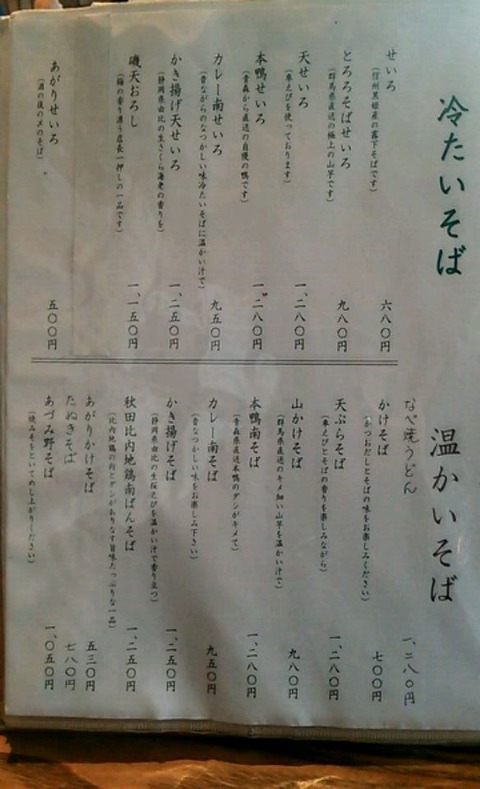 冷たいそば
せいろ
(信州黒姫産の霧下そばです)
六八〇円
とろろそばせいろ
(群馬県直送の極上の山芋です)
九八〇円
天せいろ
(車えびを使っております)
一、二八〇円
本鴨せいろ
(青森から直送の自慢の鴨です)
一、二八〇円
カレー南せいろ
(昔ながらのなつかしい味冷たいそばに温かい汁で)
九五〇円
かき揚げ天せいろ
(静岡県由比の生さくら海老の香りを)
一、二五〇円
磯天おろし
(梅の香り漂う店長一押しの一品です)
一、一五〇円
あがりせいろ
(酒の後の〆のそば)
五〇〇円
温かいそば
なべ焼うどん
一、二八〇円
かけそば
(かつおだしとそばの味をお楽しみください)
七〇〇円
天ぷらそば
(車えびとそばの香りを楽しみながら)
一、二八〇円
山かけそば
(群馬県直送のキメ細い山芋を温かい汁で)
九八〇円
本鴨南そば
(青森県直送本鴨のダシがキメて)
一、二八〇円
カレー南そば
(昔なつかしい味をお楽しみ下さい)
九五〇円
かき揚げそば
(静岡県由比の生桜えびを温かい汁で香り立つ)
一、二五〇円
秋田比内地鶏南ばんそば
(比内地鶏の肉とダシがおりなす旨味たっぷりな一品)
一、二五〇円
あがりかけそば
五三〇円
たぬきそば
七八〇円
あづみ野そば
(焼みそをといてめし上がりください)
一、〇五〇円